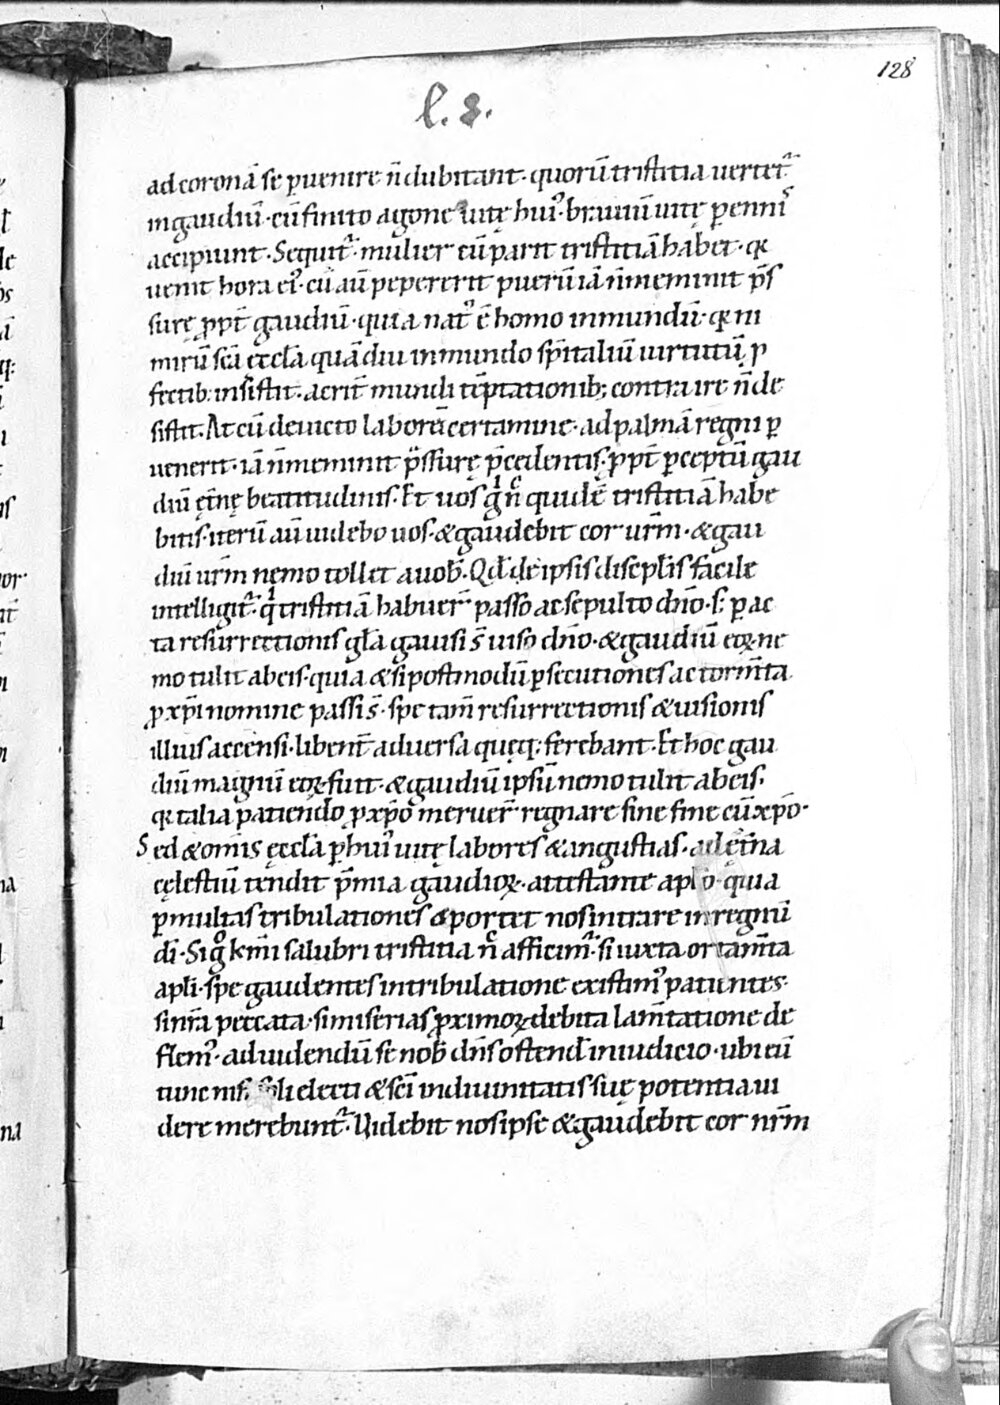 128
l. 2.
ad coronā se ꝑuenire n̄ dubitant· quorū tristitia uertet᷑
in gaudiū· cū finito agone uitę hui᷒· brauiū uitę ꝑennis
accipiunt· Sequit᷑· mulier cū parit tristitiā habet· q̄a
uenit hora ei᷒· cū aū pepererit puerū iā n̄ meminit p̄s
surę ꝓpt̄ gaudiū· quia nat᷒ ē homo in mundū· q̄a ni
mirū sc̄a ęccl̄a quādiu in mundo sp̄italiū uirtutū ꝓ
fectib; insistit· acrit̄ mundi tēptationib; contraire n̄ de
sistit. At cū deuicto laborē certamine· ad palmā regni ꝑ
uenerit· iā n̄ meminit p̄ssurę p̄cedentis· ꝓpt̄ ꝑceptū gau
diū ęt̄nę beatitudinis. Et uos gͦ nͨ quidē tristitiā habe
bitis· iterū aū uidebo uos· & gaudebit cor ur̄m· & gau
diū ur̄m nęmo tollet a uob̄. Qd̄ de ipsis discipl̄is facile
intelligit᷑· qͥ tristitiā habuer̄ passo ac sepulto dn̄o· s; ꝑac
ta resurrectionis gl̄a gauisi s̄ uiso dn̄o· & gaudiū eoꝝ ne
mo tulit ab eis· quia & si postmodū ꝑsecutiones ac torm̄ta
ꝓ xp̄i nomine passi s̄· spe tam̄ resurrectionis & uisionis
illius accensi· libent̄ aduersa quęq; ferebant· Et hoc gau
diū magnū eoꝝ fuit· & gaudiū ipsū nemo tulit ab eis·
q̄a talia patiendo ꝓ xp̄o meruer̄ regnare sine fine cū xp̄o·
Sed & om̄is ęccl̄a ꝑ hui᷒ uitę labores & angustias· ad ęt̄na
cęlestiū tendit p̄mia gaudioꝝ· attestante apl̄o· quia
ꝑ multas tribulationes oportet nos intrare in regnū
dī· Si gͦ km̄i salubri tristitia nͨ afficim᷑· si iuxta ortam̄ta
apl̄i· spe gaudentes in tribulatione existim᷒ patientes·
si nr̄a peccata· si miserias ꝓximoꝝ debita lam̄tatione de
flem᷒· ad uidendū se nob̄ dn̄s ostend̄ in iudicio· ubi eū
tunc nisi soli electi & sc̄i in diuinitatis suę potentia ui
dere merebunt᷑· Uidebit nos ipse & gaudebit cor nr̄m